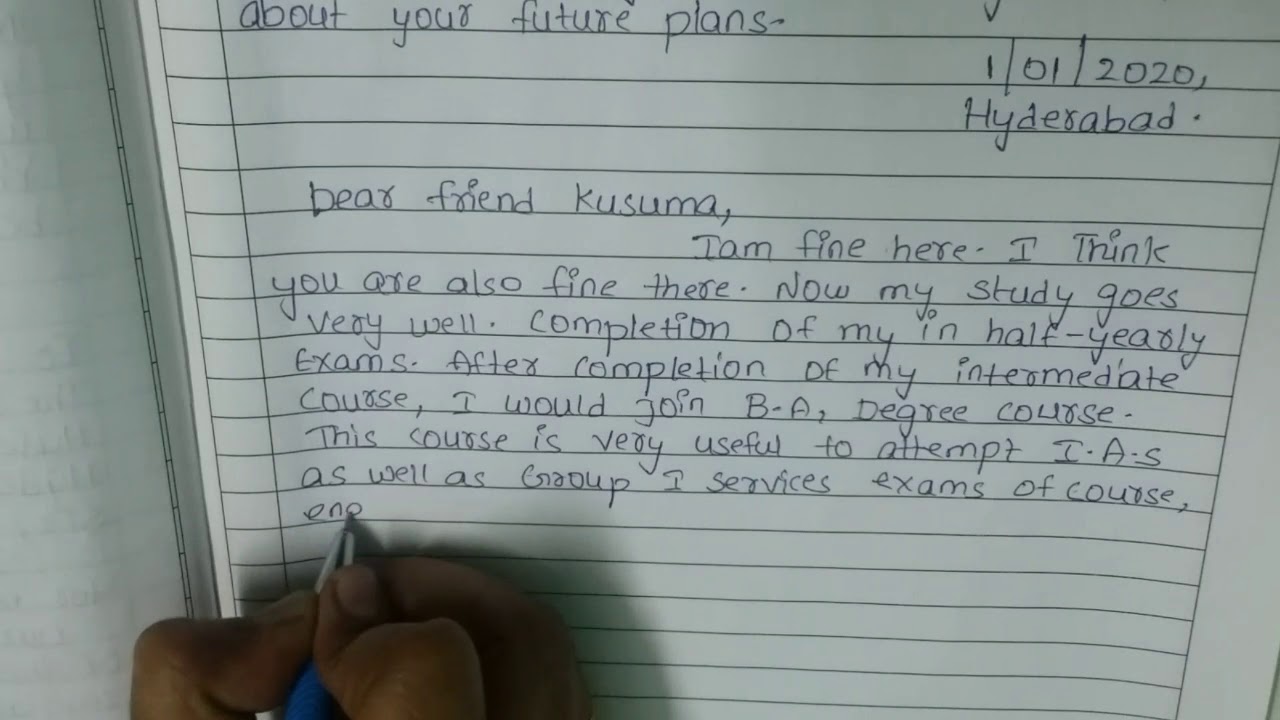 about your future plans.
1/01/2020,
Hyderabad.
Dear friend Kusuma,
Iam fine here. I Think
you are also fine there. Now my study goes
very well. Completion of my in half-yearly
Exams. After completion of my intermediate
course, I would join B.A, Degree course.
This course is very useful to attempt I.A.S
as well as Group I services exams of course,